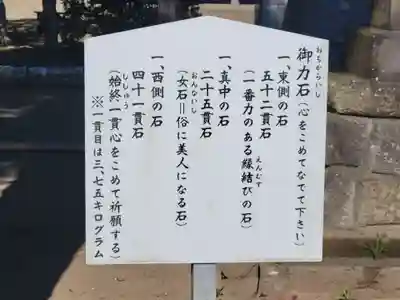 御力石(心をこめてなでて下さい)
おちからいし
一、東側の石
五十二貫石
(一番力のある縁結びの石)
えんむす
一、真中の石
二十五貫石
(女石＝俗に美人になる石)
おんないし
一、西側の石
四十一貫石
(始終一貫心をこめて祈願する)
ししゅう
※一貫目は三、七五キログラム